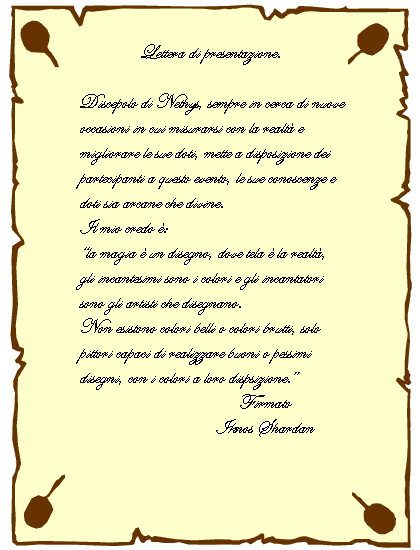 Lettera di presentazione.
Discepolo di Nethys, sempre in cerca di nuove
occasioni in cui misurarsi con la realtà e
migliorare le sue doti, mette a disposizione dei
partecipanti a questo evento, le sue conoscenze e
doti sia arcane che divine.
Il mio credo è:
"la magia è un disegno, dove tela è la realtà,
gli incantesimi sono i colori e gli incantatori
sono gli artisti che disegnano.
Non esistono colori belli o colori brutti, solo
pittori capaci di realizzare buoni o pessimi
disegni, con i colori a loro dispsizione."
Firmato
Shardan